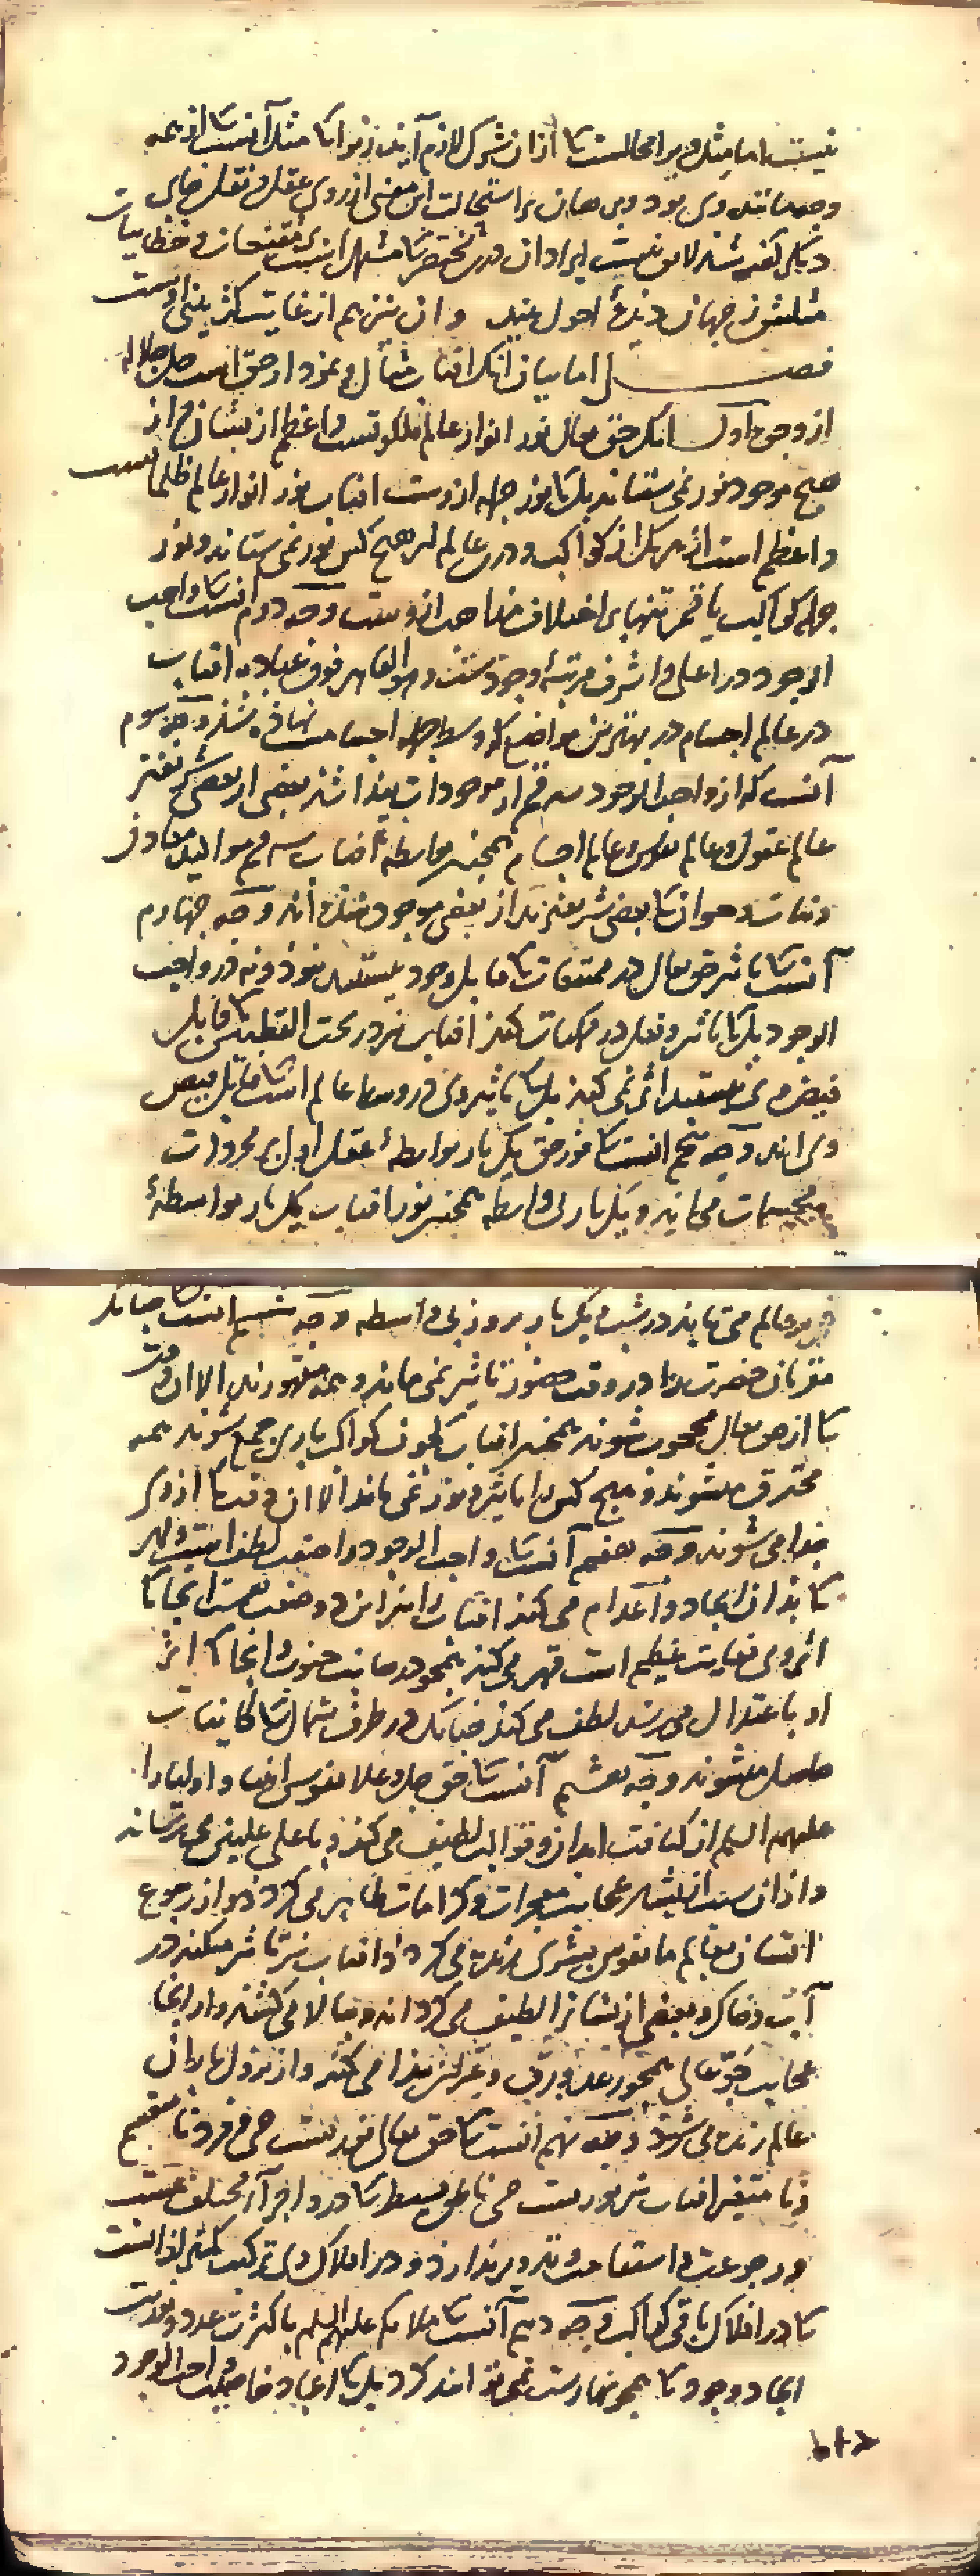 نیست اما مثل ویرا محالست کا ازان شرک لازم آید زیرا کا مثل آنست کا از همه
وجه مانند وی بود و برهان بر استحالت این معنی از روی عقل و نقل جای
دیگر گفته شد لایق نیست ایراد آن درین مختصر کا
مثلش ز جهان دیدهٔ احول بیند و آن نیز هم از غایت کژ بینی اوست
فصل اما بیان آنک افتاب مثال و نمودار حق است جل جلاله
از وجوه اول آنک حق تعالی نور انوار عالم ملکوتست و اعظم ازیشان و از
هیچ موجود نور نمی ستاند بل کا نور جمله ازوست افتاب نور انوار عالم ظلمانیست
و اعظم است از هر یک از کواکب و درین عالم از هیچ کس نور نمی ستاند و نور
جمله کواکب یا قمر تنها بر اختلاف مذاهب ازوست وجه دوم آنست کا واجب
الوجود در اعلی و اشرف مرتبهٔ وجودست و هو القاهر فوق عباده افتاب
در عالم اجسام در بهترین مواضع کا وسط جمله اجسامست نهاده شد وجه سوم
آنست که از واجب الوجود سه قسم از موجودات پیدا شد بعضی از بعضی شریفتر
عالم عقول و عالم نفوس و عالم اجسام همچنین بواسطهٔ افتاب سه قسم موالید معادن
و نبات و حیوان کا بعضی شریفترند از بعضی موجود شده اند وجه چهارم
آنست کا تاثیر حق تعالی در ممتنعات کا قابل وجود نیستند نبوذ و نه در واجب
الوجود بل کا تاثیر و فعل در ممکنات کند افتاب نیز در تحت القطبین کا قابل
فیض وی نیستند اثر نمی کند بل کا تاثیر وی در وسط عالم است کا قابل فیض
وی اند وجه پنجم آنست کا نور حق یک بار بواسطهٔ عقل اول بر مجردات
و مجسمات می تابد و یک بار بی واسطه همچنین نور افتاب یک بار بواسطهٔ
قمر بر عالم می تابد در شب و یک بار بروز بی واسطه وجه ششم آنست کا چنانک
مقربان حضرت را در وقت حضور تاثیر نمی ماند و همه مقهورند الا آن وقت
کا از حق تعالی محجوب شوند همچنین افتاب کا چون کواکب با وی جمع شوند همه
محترق میشوند و هیچ کس را تاثیر و نور نمی ماند الا آن وقت کا از وی
جدا می شوند وجه هفتم آنست کا واجب الوجود را صفت لطف است و قهر
کا بذان ایجاد و اعدام می کند افتاب را نیز این دو صفت هست آنجا کا
اثر وی بغایت عظیم است قهر می کند همچو در جانب جنوب و آنجا کا اثر
او باعتدال می رسد لطف می کند چنانک در طرف شمال کا کاینات
حاصل میشوند وجه هشتم آنست کا حق جل و علا نفوس انبیا و اولیا را
علیهم السلم از کثافت ابدان و قوالب لطیف می کند و باعلی علیین می رساند
و از آن سبب ازیشان عجایب معجزات و کرامات ظاهر می گردد و از رجوع
ایشان بعالم ما نفوس بشری زنده می گردد و افتاب نیز تاثیر میکند در
آب و خاک و بعضی ازیشانرا لطیف می گرداند و ببالا می کشد و از آنجا
عجایب حق تعالی همچو رعد و برق و غیرش پیدا می کند و از نزول باران
عالم زنده می شود وجه نهم آنست کا حق تعالی نوریست حی فرد نامنقسم
و نامتغیر افتاب نیز نوریست حی ناطق بسیط کا درو اجزاء مختلف نیست
و رجوعت و استقامت و تدویر ندارد و در افلاک وی ترکیب کمتر از آنست
کا در افلاک باقی کواکب وجه دهم آنست کا ملایکه علیهم السلم با کثرت عدد و قدرت
ایجاد وجود کا همچو نهارست نمی توانند کرد بل کا ایجاد خاصیت واجب الوجود